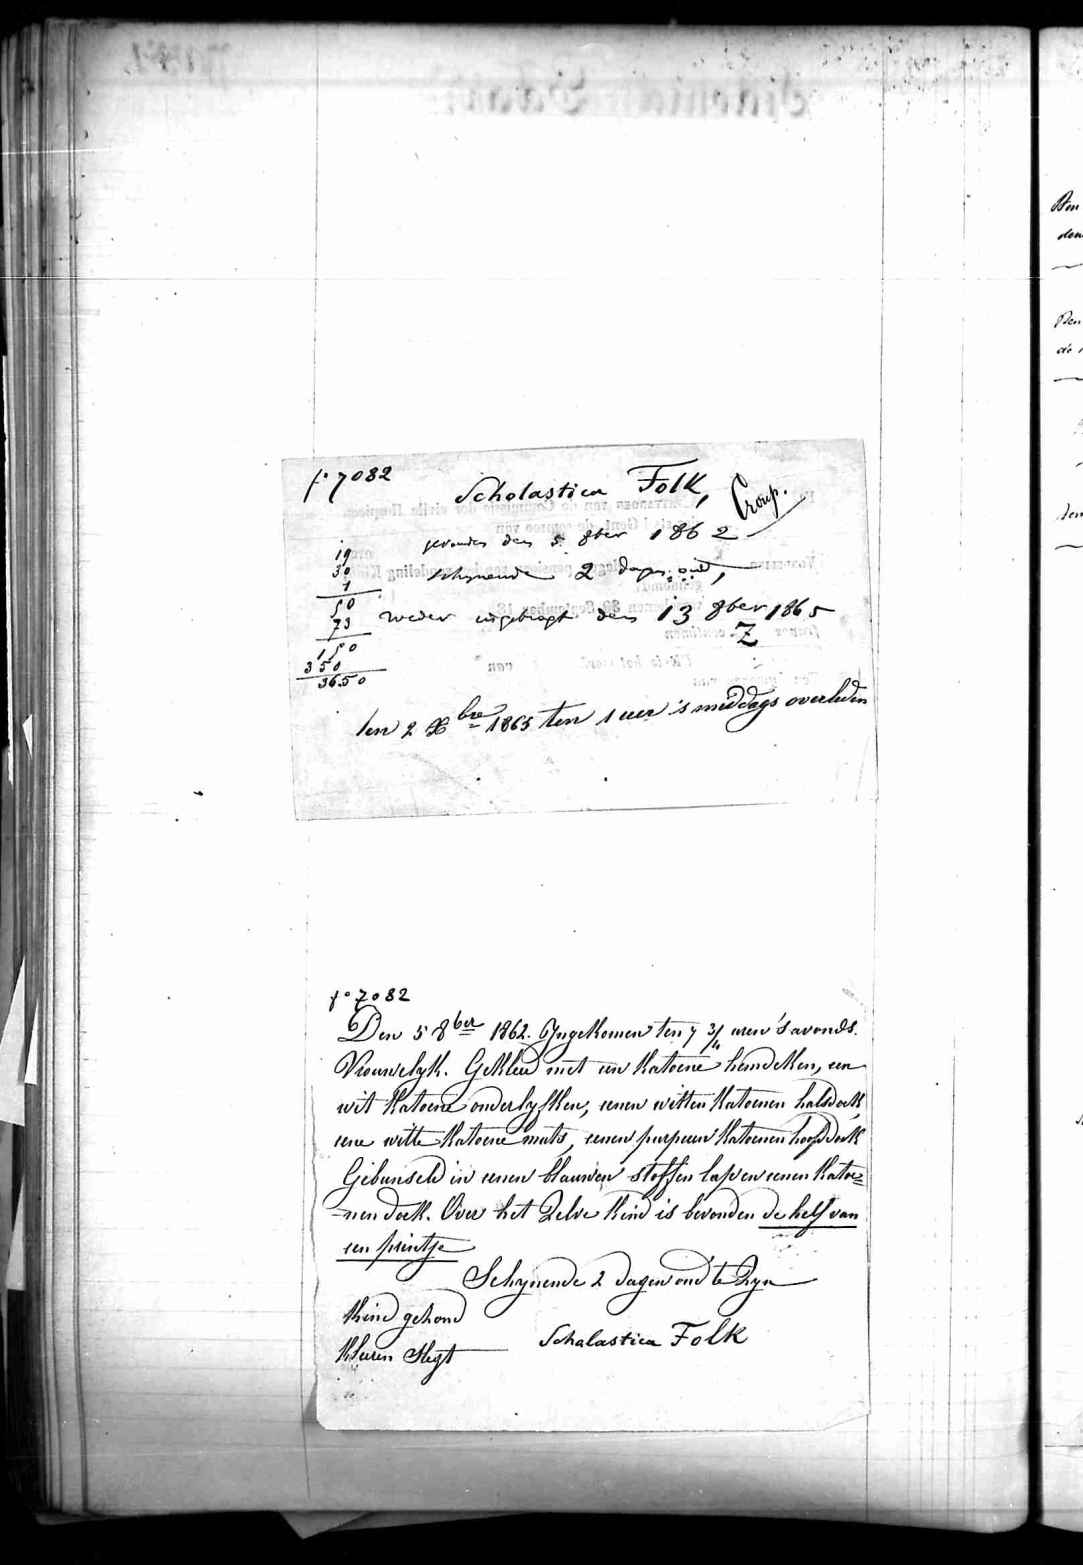 fo 7082
Scholastica Folk,
Croup.
gevonden den 5 8ber 1862
schynende 2 dagen oud,
19
30
1
50
73
150
350
3650
weder ingebragt den 13 8ber 1865
Z
den 2 Xbre 1865 ten 1 uer 's middags overleden
fo 7082
Den 5 8ber 1862. Yngekomen ten 7 3/4 uren 's avonds.
Vrouwelyk. Gekleed met een katoene hemdeken, een
wit katoene onderlyfken, eenen witten katoenen halsdoek,
eene witte katoene muts, eenen purperen katoenen hoofddoek
Gebunseld in eenen blauwen stoffen lap en eenen katoe=
=nen doek. Over het Zelve kind is bevonden de helf van
een printje
Schynende 2 dagen oud te Zyn
Kind gezond
Kleeren Slegt
Scholastica Folk